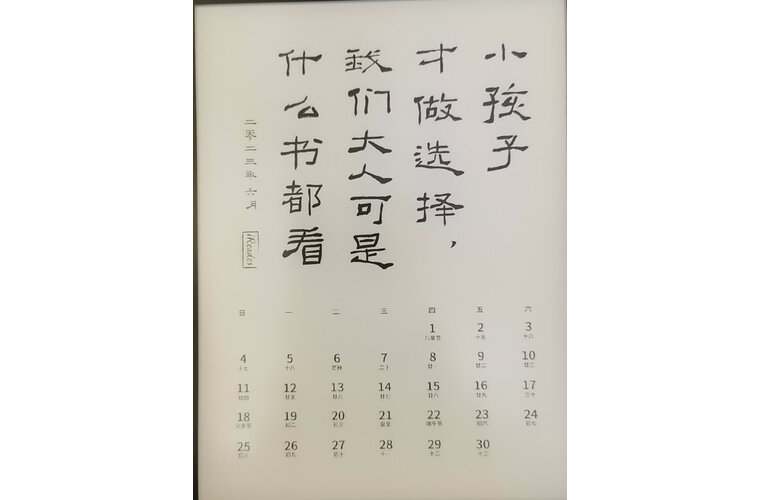 小孩子
才做选择，
我们大人可是
什么书都看
二零二三年六月
iReader
日 一 二 三 四 五 六
1 2 3
儿童节 十五 十六
4 5 6 7 8 9 10
十七 十八 芒种 二十 廿一 廿二 廿三
11 12 13 14 15 16 17
廿四 廿五 廿六 廿七 廿八 廿九 三十
18 19 20 21 22 23 24
父亲节 初二 初三 夏至 端午节 初六 初七
25 26 27 28 29 30
初八 初九 初十 十一 十二 十三